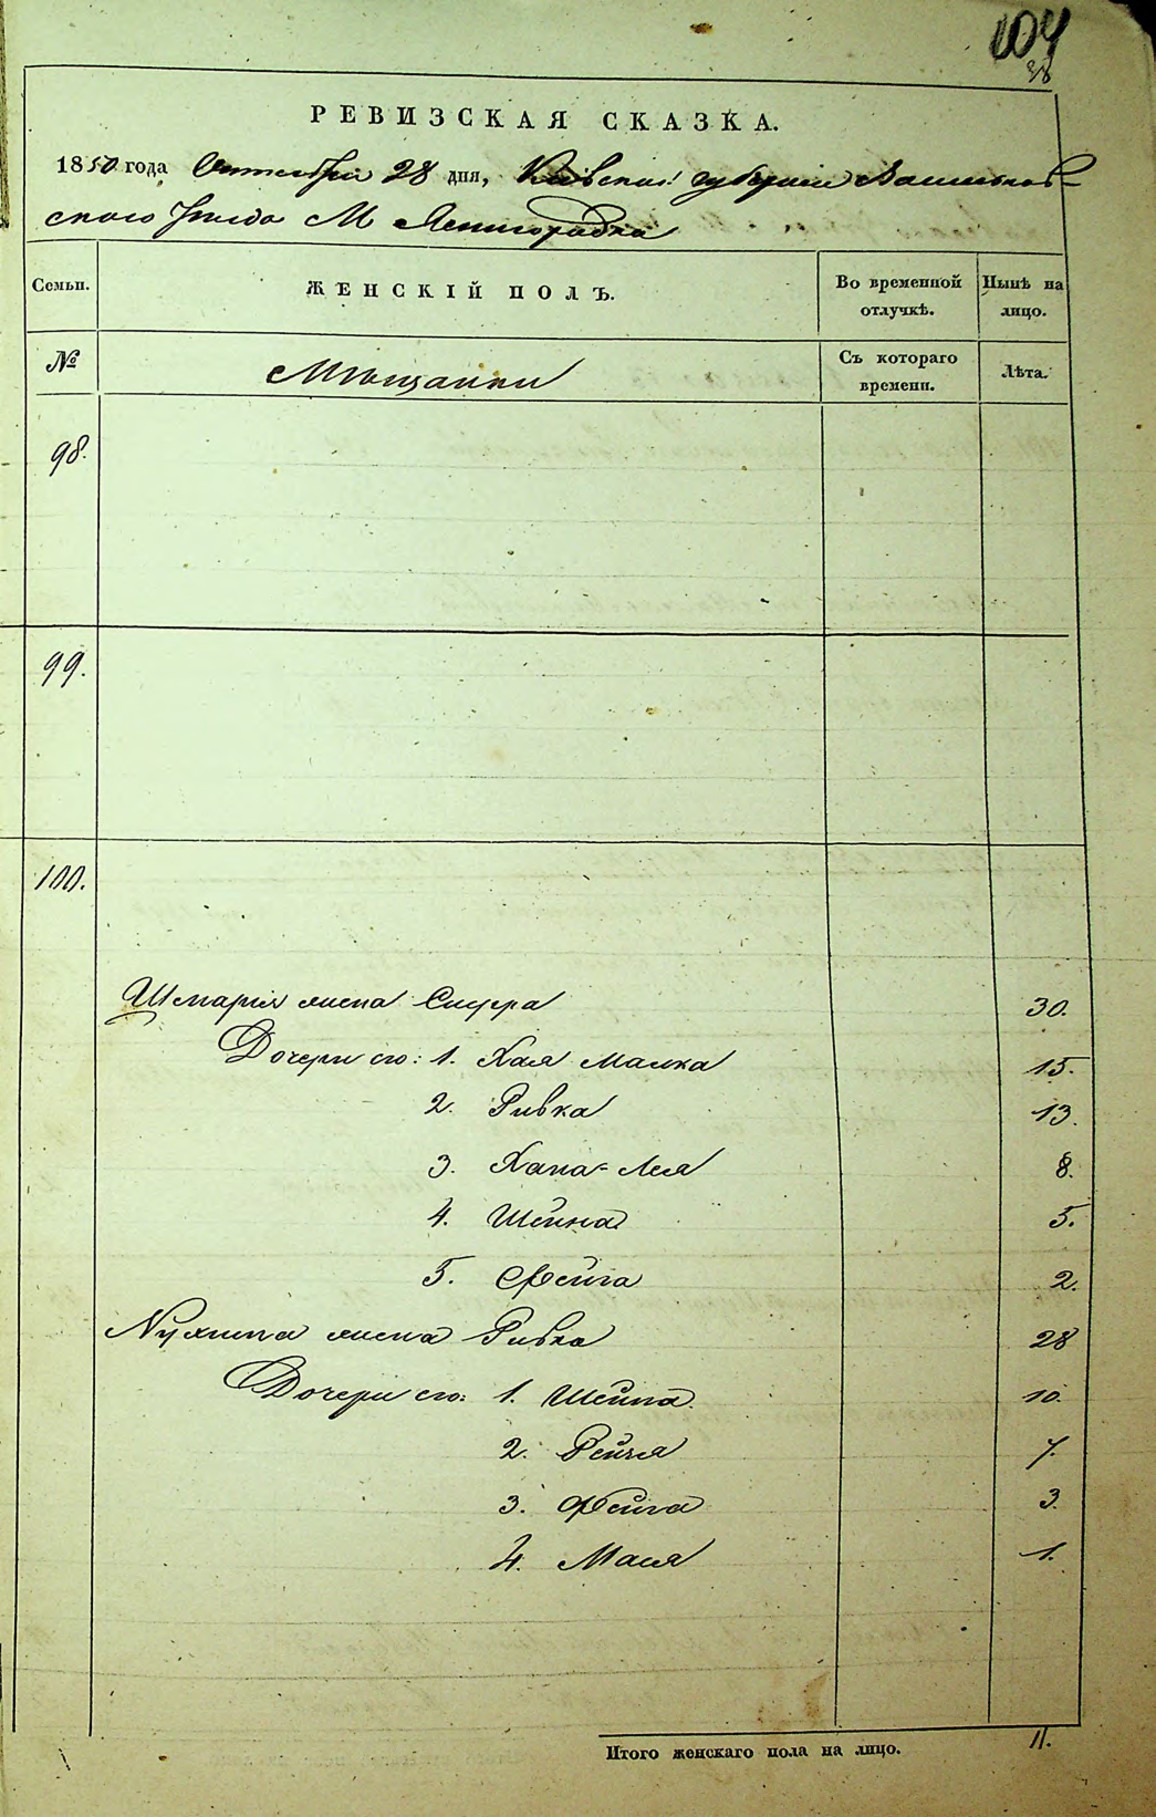 104
38
РЕВИЗСКАЯ СКАЗКА.
1850 года Октября 28 дня, Кіевской губерніи Васильков-
скаго уезда М Ясногородка
Семьи. ЖЕНСКІЙ ПОЛЪ. Во временной отлучкѣ. Нынѣ на лицо.
№ Мѣщанки Съ котораго времени. Лѣта.
98.
99.
100.
Шмарія жена Сифра 30.
Дочери его: 1. Хая Малка 15.
2. Ривка 13.
3. Хана-Лея 8.
4. Шейна 5.
5. Фейга 2.
Нухима жена Ривка 28
Дочери его: 1. Шейна 10.
2. Рейзя 7.
3. Фейга 3.
4. Мася 1.
Итого женскаго пола на лицо. 11.